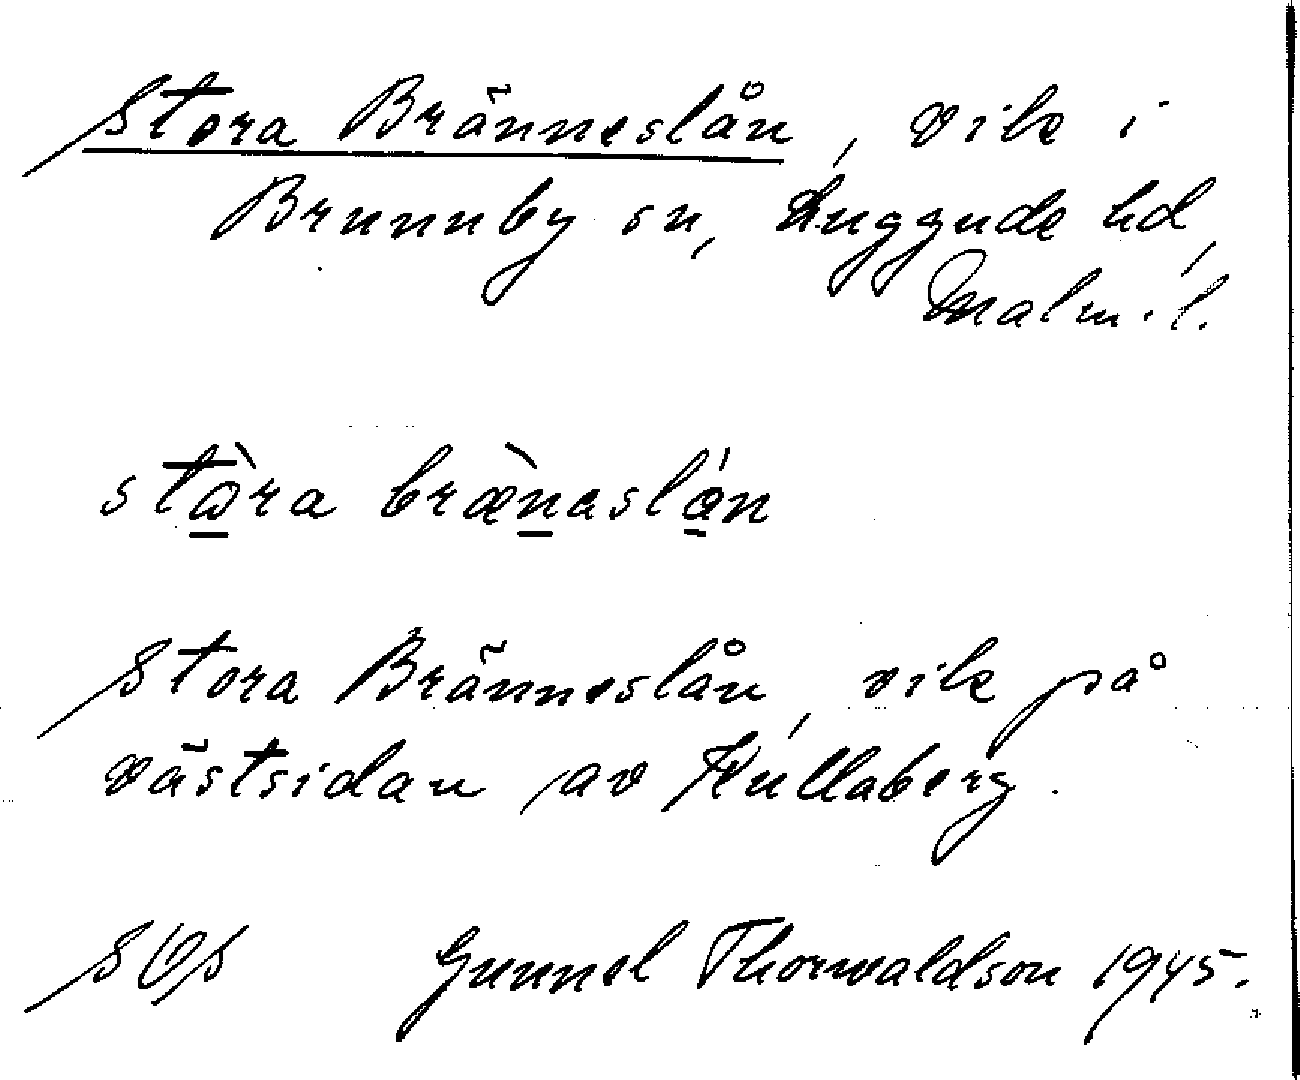 Stora Bränneslån, vik i
Brunnby sn, Luggude hd,
Malm.l.
stⱺ̀ra bræ̀naslán
Stora Bränneslån, vik på
västsidan av Kullaberg.
SOS Gunnel Thorwaldson 1945.